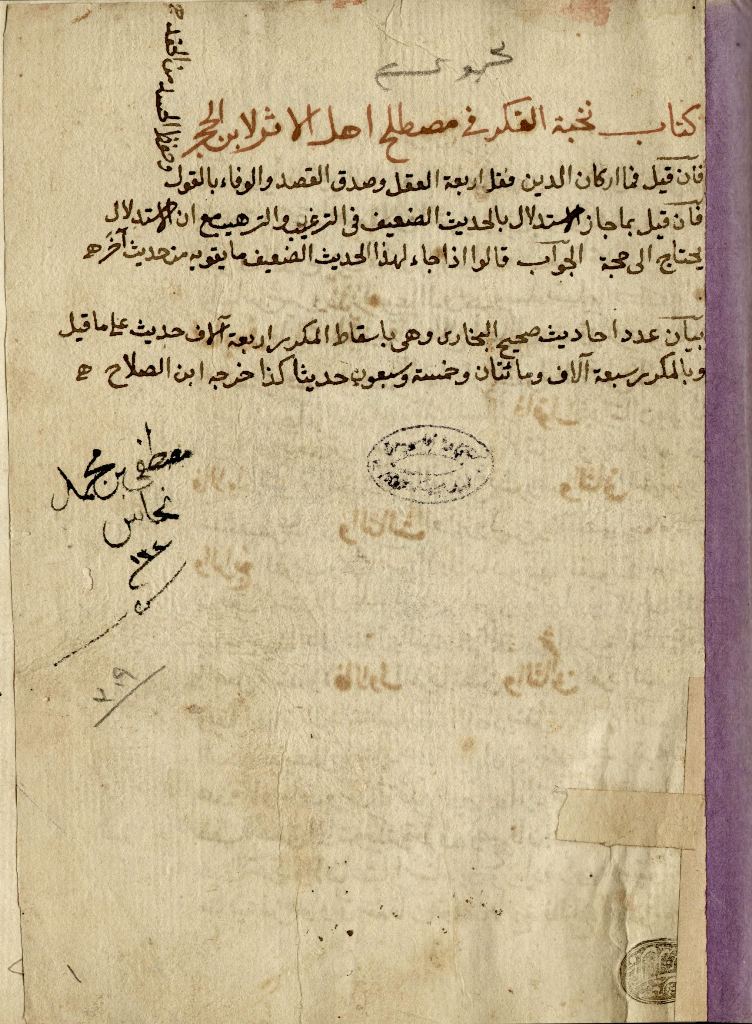 كتاب نخبة الفكر في مصطلح اهل الاثر لابن الحجر
فآن قيل فما اركان الدين فقل اربعة العقل وصدق القصد والوفاء بالقول
وحفظ الحد من الخلل
فآن قيل بما جاز الاستدلال بالحديث الضعيف في الترغيب والترهيب مع ان الاستدلال
يحتاج الى حجة الجوآب قالوا اذا جاء لهذا الحديث الضعيف ما يقويه من حديث آخر
بيآن عدد احاديث صحيح البخارى وهى باسقاط المكرر اربعة آلاف حديث على ما قيل
وبالمكرر سبعة آلاف ومائتان وخمسة وسبعون حديثا كذا خرجه ابن الصلاح
مصطفى بن محمد
نحاس